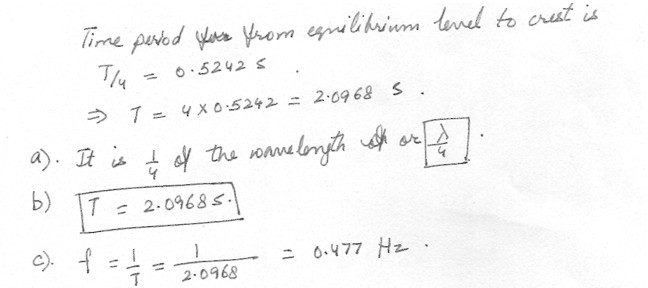 Time period from equilibrium level to crest is
T/4 = 0.5242 s.
⇒ T = 4 × 0.5242 = 2.0968 s.
a). It is 1/4 of the wavelength or λ/4.
b) T = 2.0968 s.
c). f = 1/T = 1/2.0968 = 0.477 Hz.